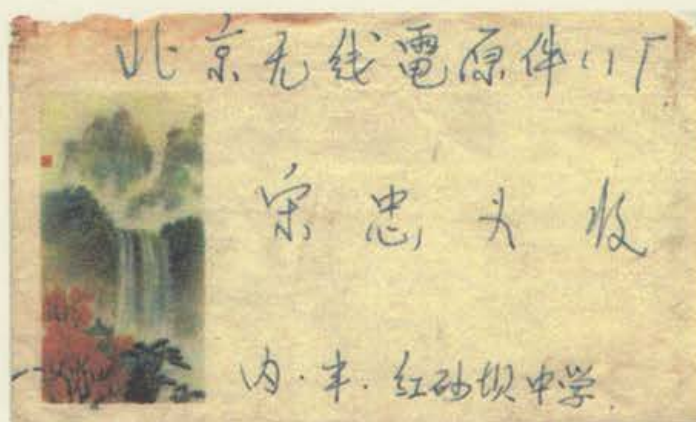 北京无线電原件11厂
宋忠义 收
内·丰·红砂坝中学